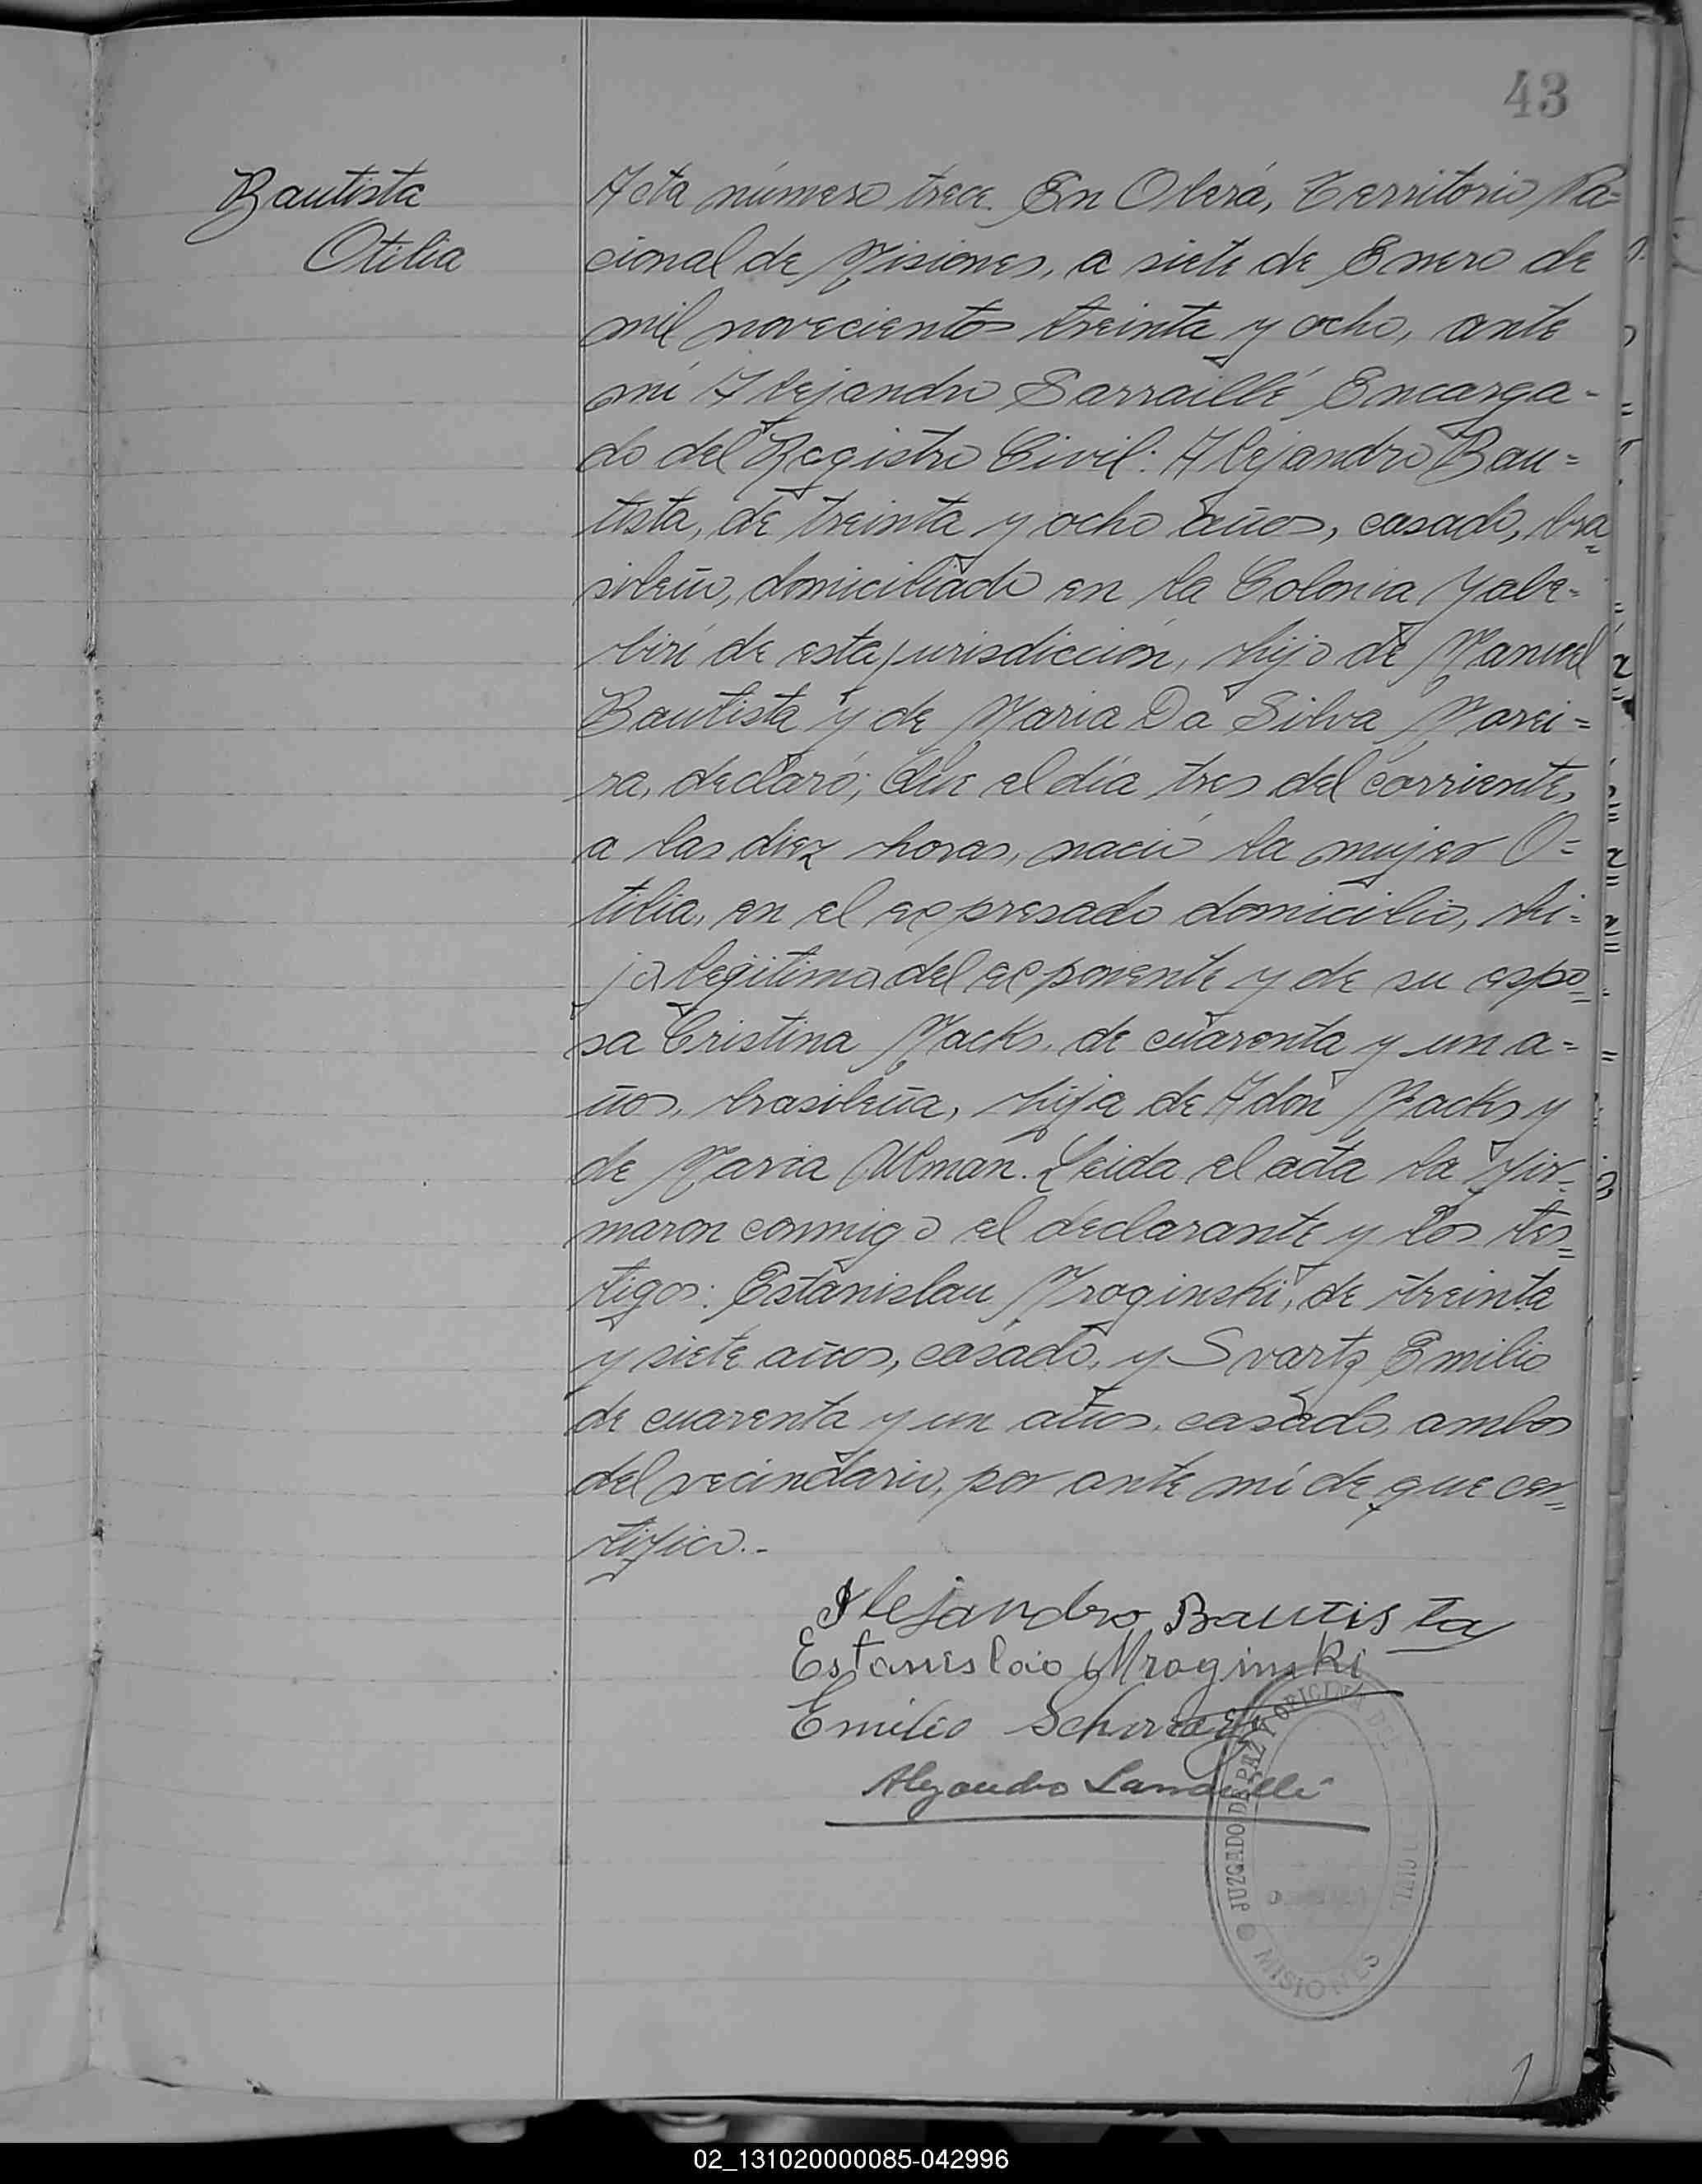 43
Bautista
Otilia
Acta número trece. En Oberá, Territorio Na=
cional de Misiones, a siete de Enero de
mil novecientos treinta y ocho, ante
mi Alejandro Sarraillé Encarga-
do del Registro Civil: Alejandro Bau=
tista, de treinta y ocho años, casado, bra=
sileño, domiciliado en la Colonia Yabe-
birí de esta jurisdicción, hijo de Manuel
Bautista y de Maria Da Silva Morei=
ra, declaró; Que el día tres del corriente,
a las diez horas, nació la mujer O=
tilia, en el expresado domicilio, hi=
ja legitima del exponente y de su espo=
sa Cristina Macks, de cuarenta y un a=
ños, brasileña, hija de Adon Macks y
de Maria Ulman. Leida el acta la fir=
maron conmigo el declarante y los tes=
tigos: Estanislau Mroginski, de treinta
y siete años, casado, y Svartz Emilio
de cuarenta y un años, casado, ambos
del vecindario, por ante mí de que cer=
tifico.-
Alejandro Bautista
Estanislao Mroginski
Emilio
Alejandro Sarraillé
JUZGADO DE PAZ Y OFICINA DEL
CIVIL
MISIONES
02_131020000085-042996